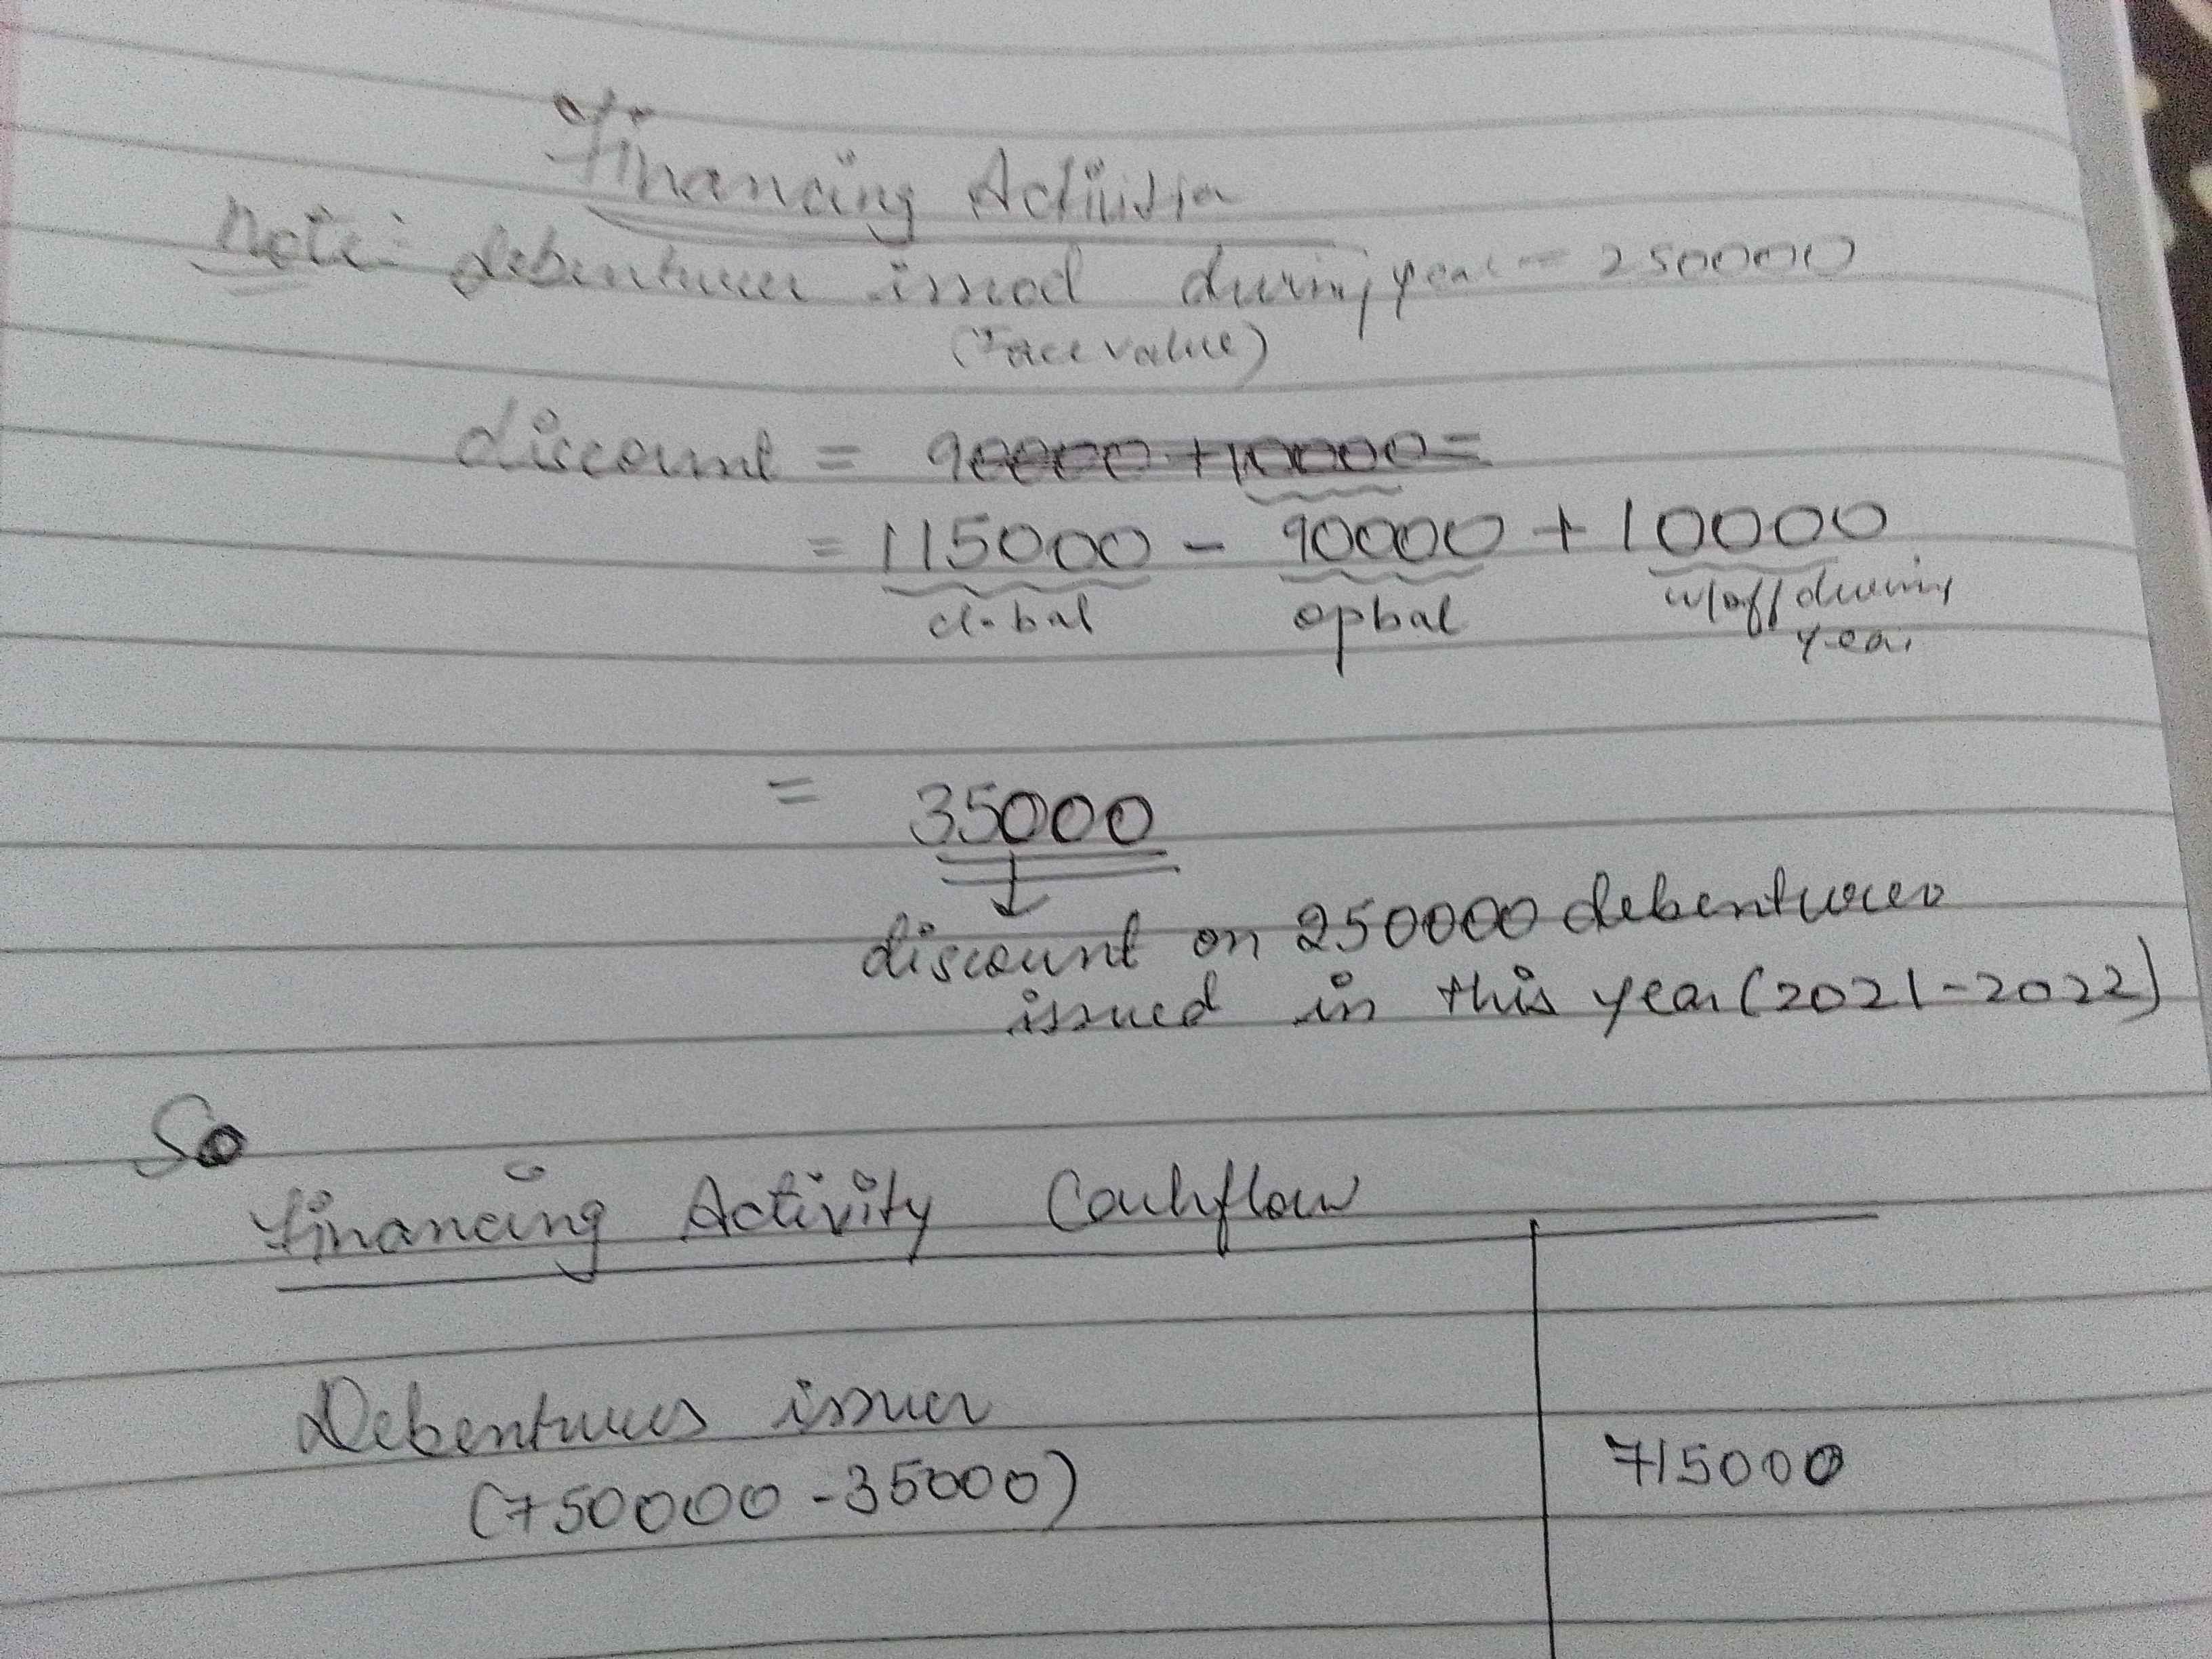 Financing Activitie
Note:- debentures issued during year = 250000
(Face value)
discount = 90000 + 10000 =
= 115000 - 90000 + 10000
cl. bal opbal w/off during
year
= 35000
discount on 250000 debentures
issued in this year (2021-2022)
So
Financing Activity Cashflow
Debentures issues
(750000 - 35000) 715000